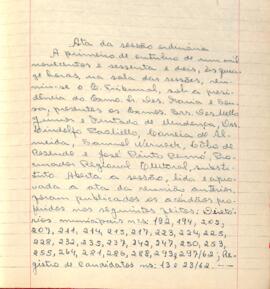 Ata da sessão ordinária
A primeiro de outubro de um mil
novecentos e sessenta e dois, às quinze
horas, na sala das sessões, reuniu-
se o E. Tribunal, sob a presi-
dência do Exmo. Sr. Des. Faria e Sou-
sa, presentes os Exmos. Srs. Des. Mello
Junior e Furtado de Mendonça, Drs.
Lindolfo Paoliello, Carneiro de Al-
meida, Samuel Werneck, Otto de
Resende e José Pinto Renó, Pro-
curador Regional Eleitoral, substi-
tuto. Aberta a sessão, lida e apro-
vada a ata da reunião anterior,
foram publicados os acórdãos pro-
feridos nos seguintes feitos: Diretó-
rios municipais ns: 192, 194, 202,
207, 211, 214, 215, 217, 223, 224, 225,
228, 232, 235, 237, 242, 247, 250, 253,
255, 264, 281, 286, 288, 293 e 297/62; Re-
gistro de Candidatos ns: 13 e 23/62.